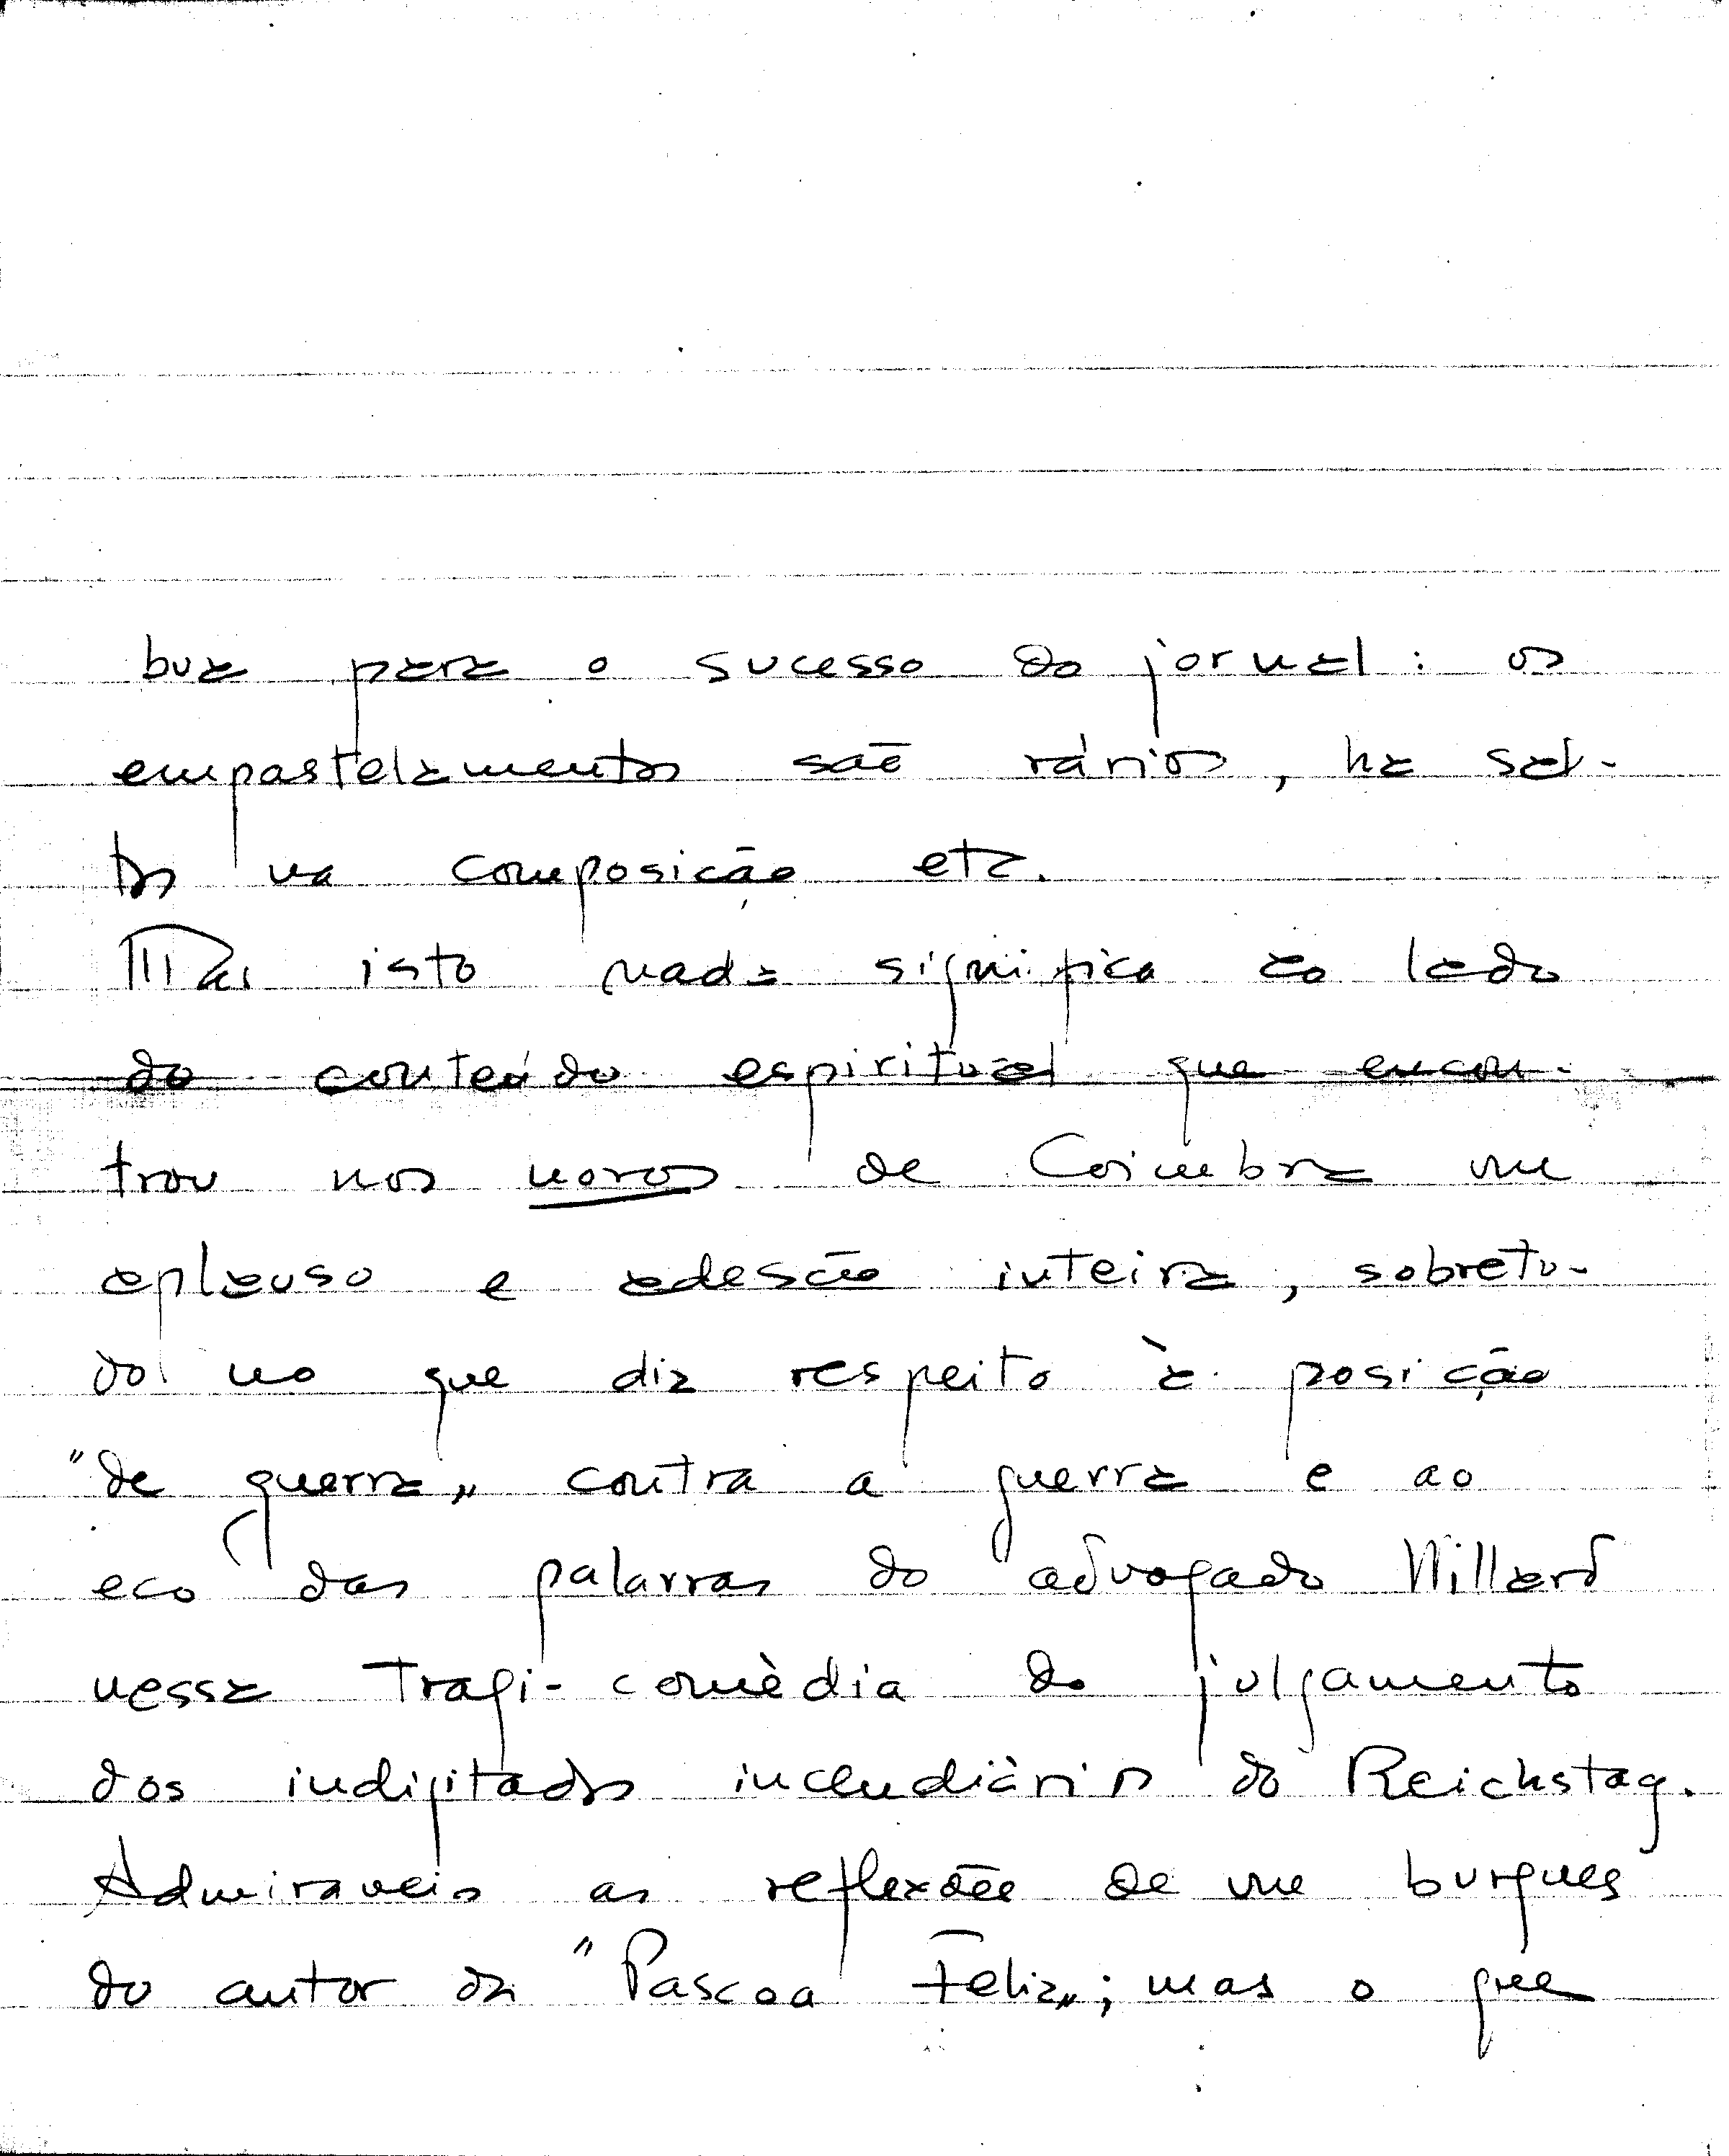 bua para o sucesso do jornal: os
empastelamentos são vários, ha sal-
tos na composição etc.
Mas isto nada significa ao lado
do conteúdo espiritual que encon-
trou nos novos de Coimbra um
aplauso e adesão inteira, sobretu-
do no que diz respeito à posição
"de guerra„ contra a guerra e ao
eco das palavras do advogado Willard
nessa tragi-comèdia do julgamento
dos indigitados incendiàrios do Reichstag.
Admiraveis as reflexões de um burgues
do autor da "Pascoa Feliz„; mas o que